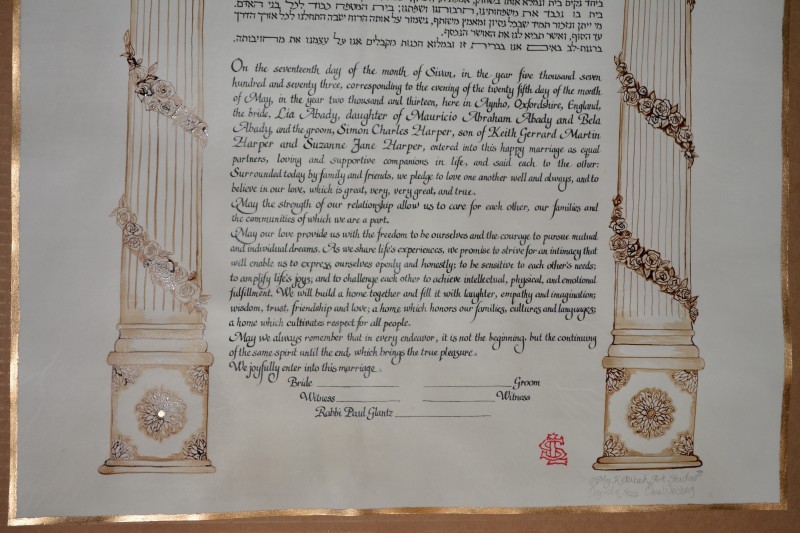 ברגות-לב באים אנו בברית זו ובמלוא הכנות מקבלים אנו על עצמנו את מחויבותה.
On the seventeenth day of the month of Sivan, in the year five thousand seven
hundred and seventy three, corresponding to the evening of the twenty fifth day of the month
of May, in the year two thousand and thirteen, here in Aynho, Oxfordshire, England,
the bride, Lia Abady, daughter of Mauricio Abraham Abady and Bela
Abady, and the groom, Simon Charles Harper, son of Keith Gerrard Martin
Harper and Suzanne Jane Harper, entered into this happy marriage as equal
partners, loving and supportive companions in life, and said each to the other:
Surrounded today by family and friends, we pledge to love one another well and always, and to
believe in our love, which is great, very, very great, and true.
May the strength of our relationship allow us to care for each other, our families and
the communities of which we are a part.
May our love provide us with the freedom to be ourselves and the courage to pursue mutual
and individual dreams. As we share life's experiences, we promise to strive for an intimacy that
will enable us to express ourselves openly and honestly; to be sensitive to each other's needs;
to amplify life's joys; and to challenge each other to achieve intellectual, physical, and emotional
fulfillment. We will build a home together and fill it with laughter, empathy and imagination;
wisdom, trust, friendship and love; a home which honors our families, cultures and languages;
a home which cultivates respect for all people.
May we always remember that in every endeavor, it is not the beginning, but the continuing
of the same spirit until the end, which brings the true pleasure.
We joyfully enter into this marriage.
Bride Groom
Witness Witness
Rabbi Paul Glantz
My Ketubah Art Studio